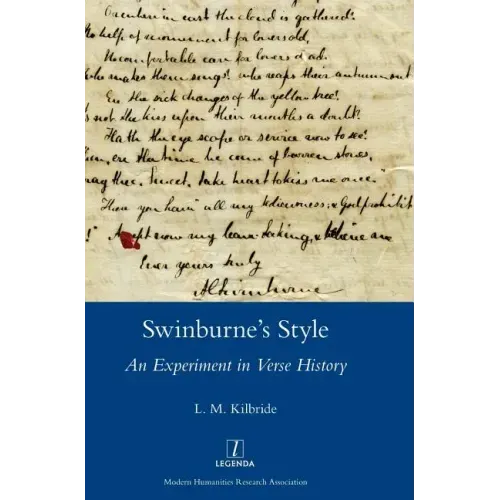 in east the cloud is gathered!
No help of monument for lovers old,
No comfortable care for lovers dead.
Who makes them songs? who reaps their autumn out
Ere the sick changes of the yellow tree!
Is not the kiss upon their mouths a doubt?
Hath the eye scope or service now to see?
ere that time he come of barren stories,
pray thee, sweet, take heart to kiss me once."
you have all my tediousness: & God prohibit
Accept now my leave-taking, & believe me
Ever yours truly
ACSwinburne
Swinburne's Style
An Experiment in Verse History
L. M. Kilbride
L
LEGENDA
Modern Humanities Research Association